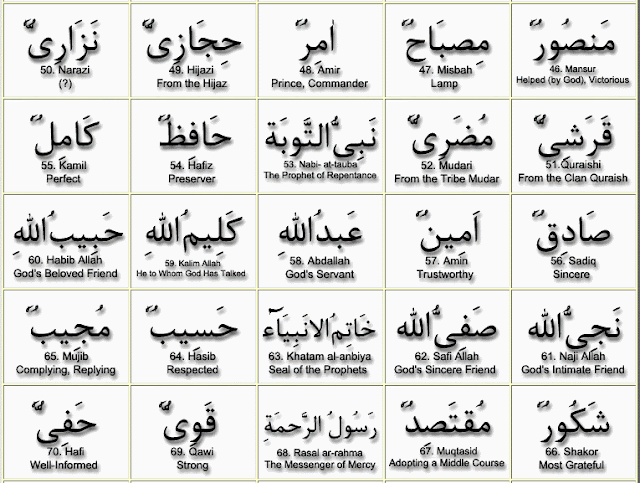 مَنصُورٌ
46. Mansur
Helped (by God), Victorious
مِصبَاحٌ
47. Misbah
Lamp
اٰمِرٌ
48. Amir
Prince, Commander
حِجَازِىٌّ
49. Hijazi
From the Hijaz
نَزَارِىٌّ
50. Narazi
(?)
قَرَشِىٌّ
51.Quraishi
From the Clan Quraish
مُضَرِىٌّ
52. Mudari
From the Tribe Mudar
نَبِىُّ التَّوبَةِ
53. Nabi- at-tauba
The Prophet of Repentance
حَافِظٌ
54. Hafiz
Preserver
كَامِلٌ
55. Kamil
Perfect
صَادِقٌ
56. Sadiq
Sincere
اَمِينٌ
57. Amin
Trustworthy
عَبدُ اللهِ
58. Abdallah
God's Servant
كَلِيمُ اللهِ
59. Kalim Allah
He to Whom God Has Talked
حَبِيبُ اللهِ
60. Habib Allah
God's Beloved Friend
نَجِىُّ اللهِ
61. Naji Allah
God's Intimate Friend
صَفِىُّ اللهِ
62. Safi Allah
God's Sincere Friend
خَاتِمُ الانبِيَآءِ
63. Khatam al-anbiya
Seal of the Prophets
حَسِيبٌ
64. Hasib
Respected
مُجِيبٌ
65. Mujib
Complying, Replying
شَكُورٌ
66. Shakor
Most Grateful
مُقتَصِدٌ
67. Muqtasid
Adopting a Middle Course
رَسُولُ الرَّحمَةِ
68. Rasal ar-rahma
The Messenger of Mercy
قَوِىٌّ
69. Qawi
Strong
حَفِىٌّ
70. Hafi
Well-Informed